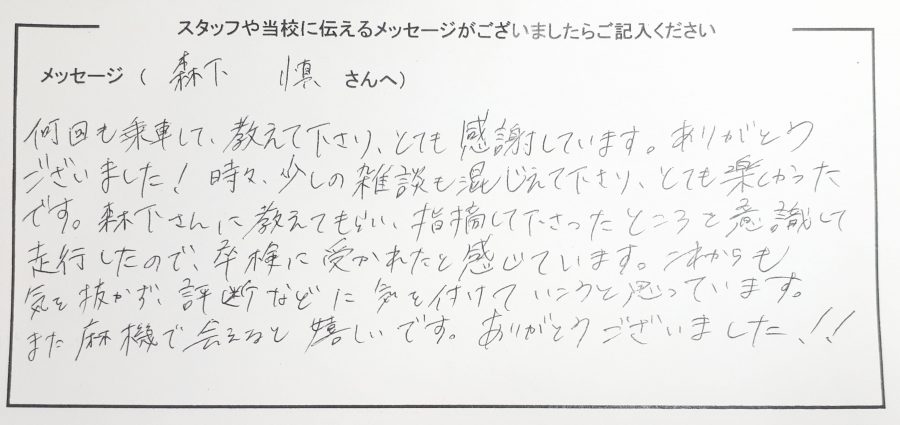 スタッフや当校に伝えるメッセージがございましたらご記入ください
メッセージ（ 森下 慎 さんへ）
何回も乗車して、教えて下さり、とても感謝しています。ありがとう
ございました！時々、少しの雑談も混じえて下さり、とても楽しかった
です。森下さんに教えてもらい、指摘して下さったところを意識して
走行したので、卒検に受かれたと感じています。これからも
気を抜かず、評断などに気を付けていこうと思っています。
また麻機で会えると嬉しいです。ありがとうございました！！